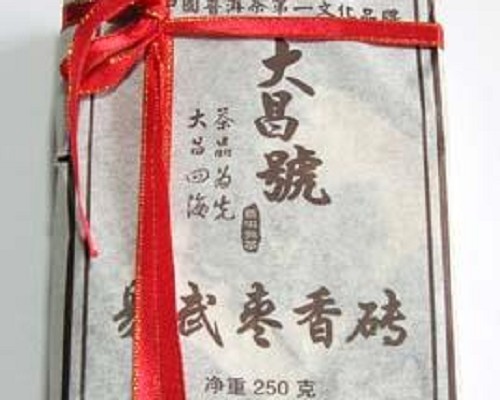 中國普洱茶第一文化品牌
大昌號
茶品為先
大昌四海
易武枣香砖
净重 250 克